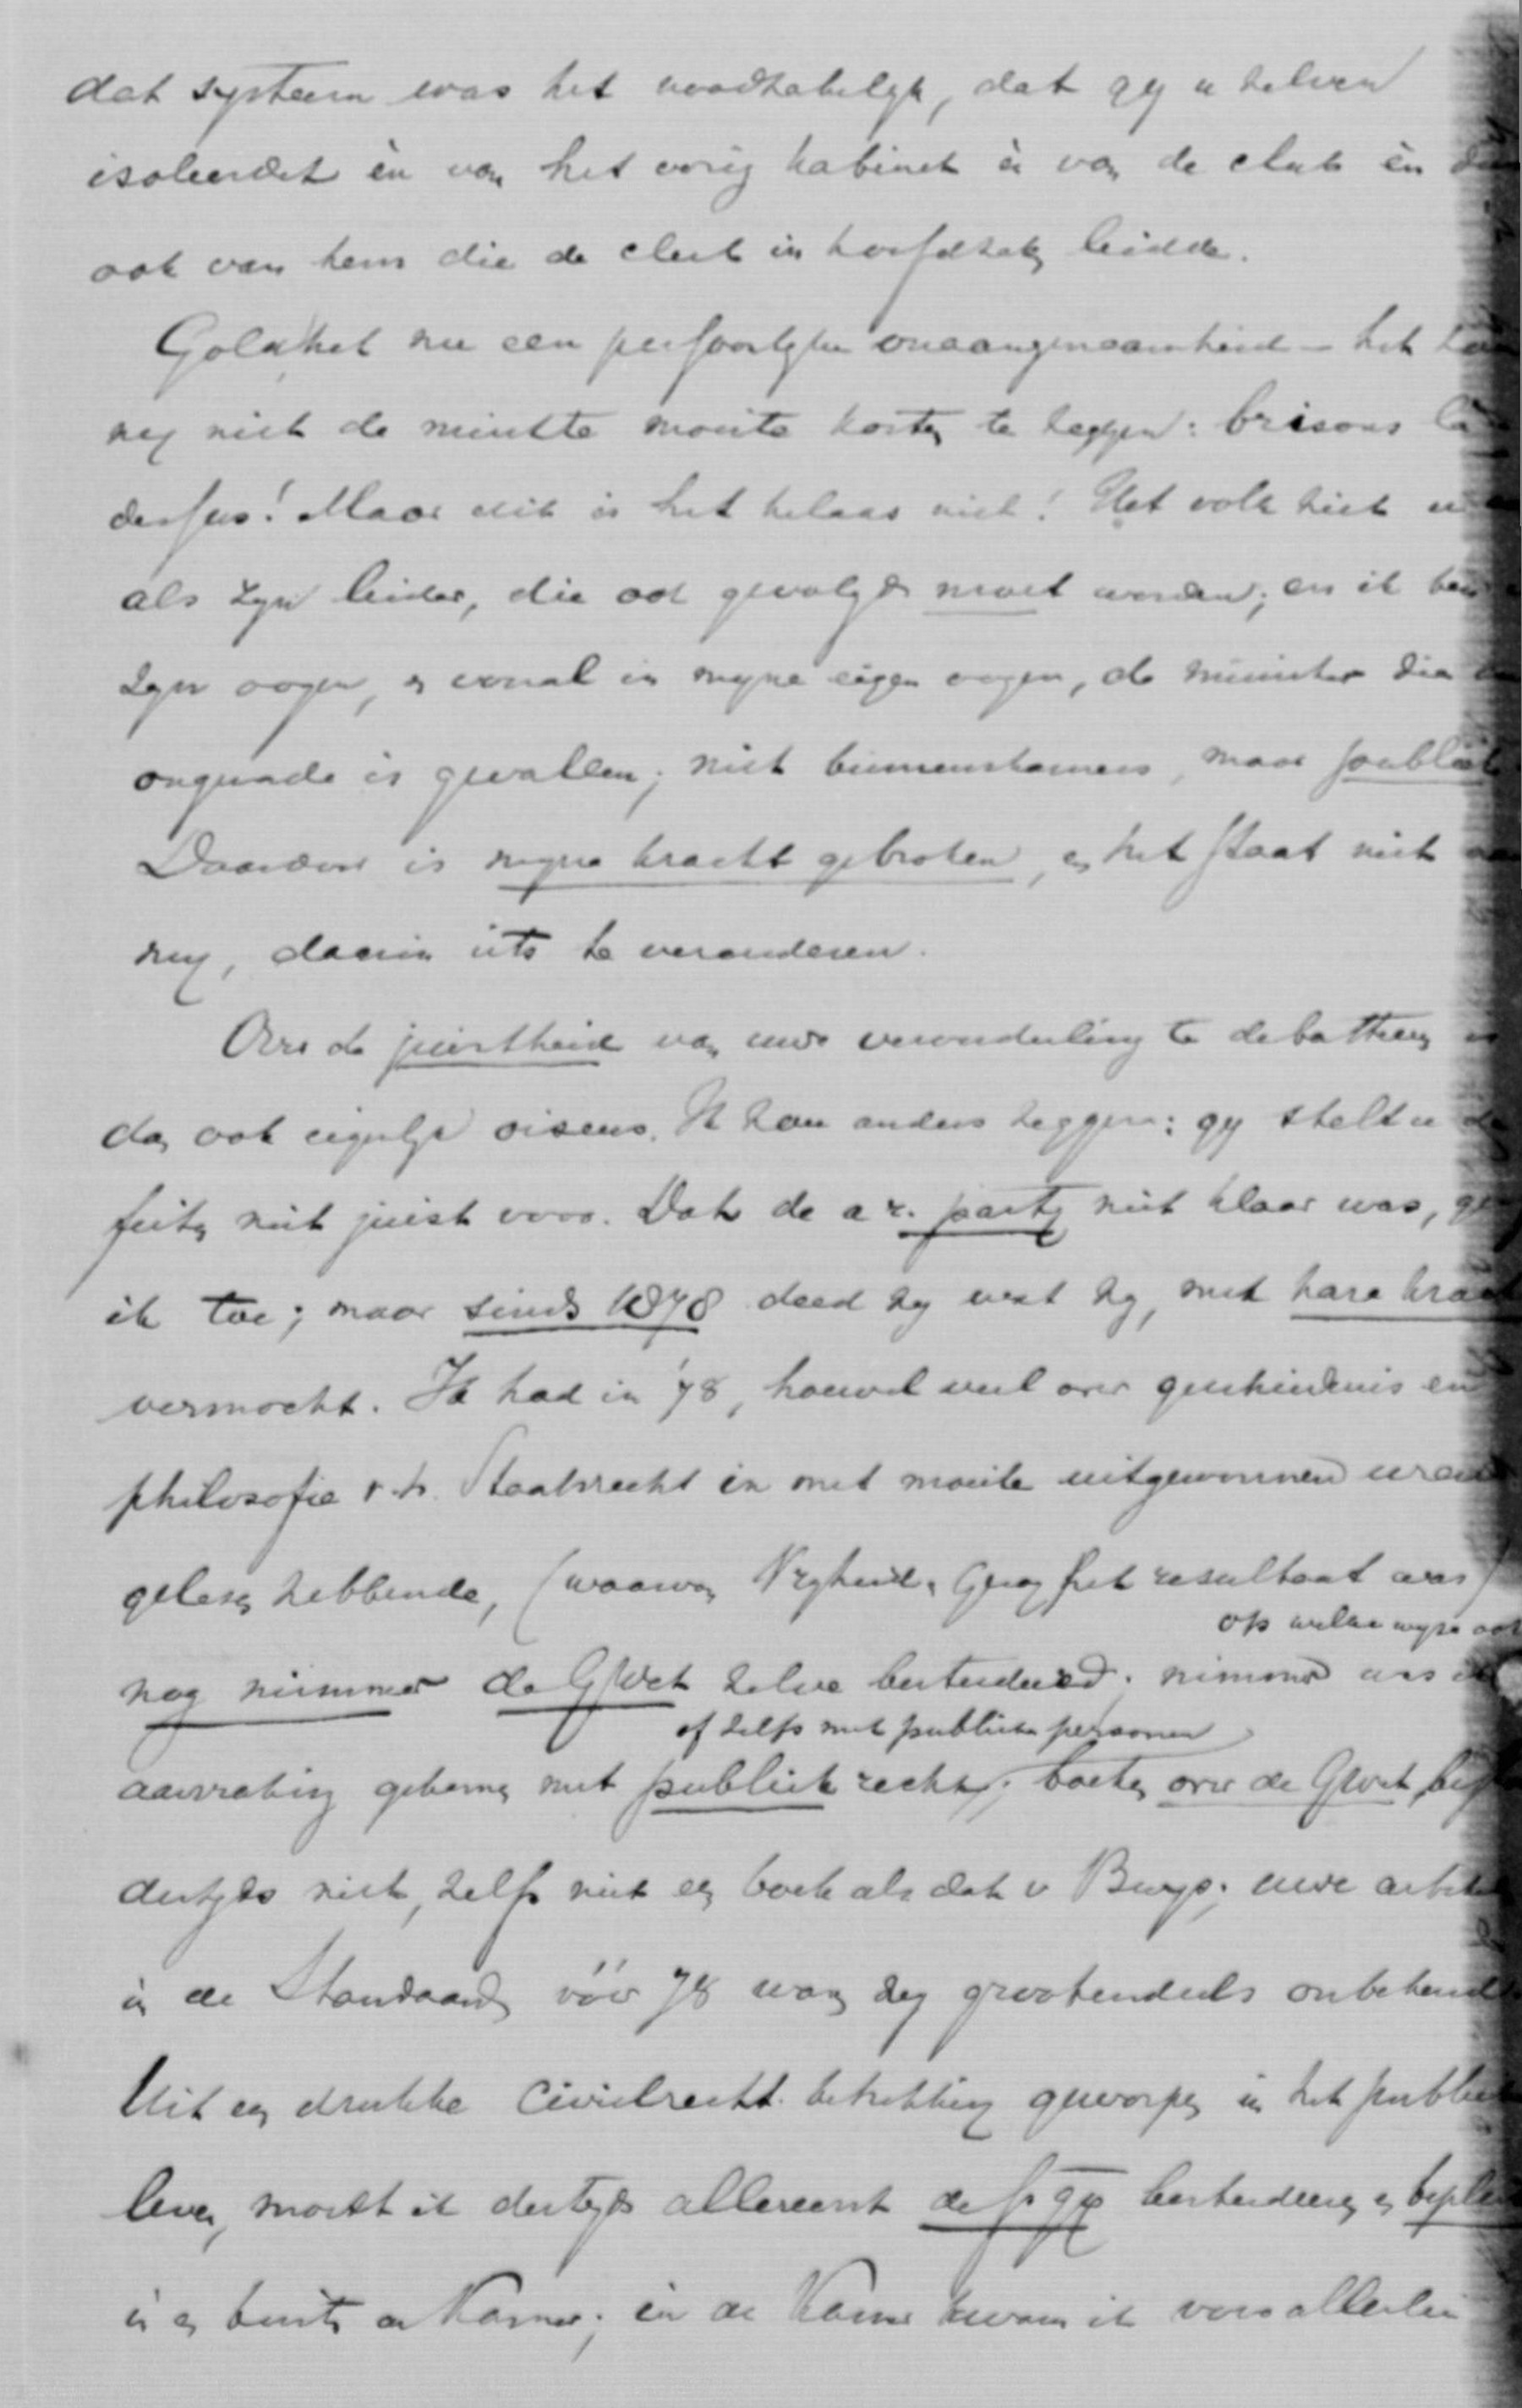 dat systeem was het noodzakelijk, dat gij u zelven
isoleerdet èn van het vorig kabinet èn van de club èn
ook van hem die de club in hoofdzaak leidde.
Gold het nu een persoonlijke onaangenaamheid – het zou
mij niet de minste moeite kosten te zeggen: brisons là
dessus! Maar dit is het helaas niet! Het volk ziet u
als zijn leider, die ook gevolgd moet worden; en ik ben
zijn oogen, en vooral in mijne eigen oogen, de minister die
ongenade is gevallen; niet binnenskamers, maar publiek
Daardoor is mijne kracht gebroken, en het staat niet aan
mij, daarin iets te veranderen.
Over de juistheid van uwe veronderstelling te debatteeren is
dan ook eigenlijk oiseus. Ik zou anders zeggen: gij stelt u de
feiten niet juist voor. Dat de a.r. partij niet klaar was, geef
ik toe; maar sinds 1878 deed zij wat zij, met hare kracht
vermocht. Ik had in '78, hoewel veel over geschiedenis en
philosofie v.h. Staatsrecht in met moeite uitgewonnen uren
gelezen hebbende, (waarvan Vrijheid, Gezag het resultaat was)
op welke wijze ook
nog nimmer de GWet zelve bestudeerd; nimmer was ik
of zelfs met publieke personen
aanraking gekomen met publiek recht; boeken over de GWet
destijds niet, zelfs niet een boek als dat v Buys; uwe artikelen
in de Standaard vóór 78 waren mij grootendeels onbekend
Uit een drukke civielrecht. betrekking geworpen in het publieke
leven, moest ik destijds allereerst de bestudeeren en bepleiten
in en buiten de Kamer; in de Kamer kwam ik voor allerlei